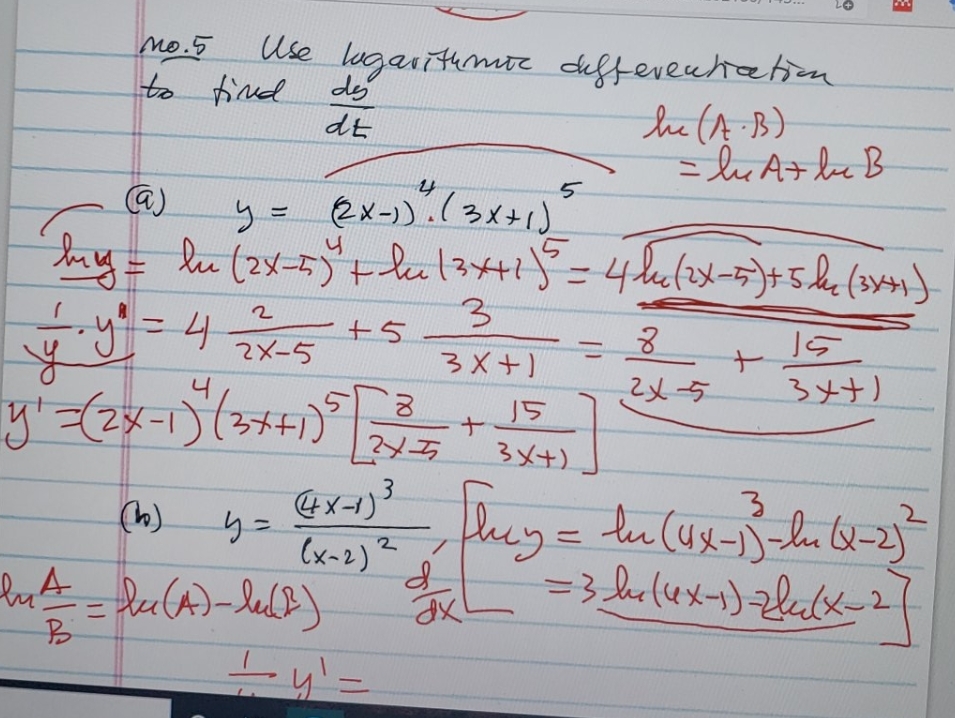 No.5 Use logarithmic differentiation
to find dy/dt
ln(A·B)
= ln A + ln B
(a) y = (2x-1)^4·(3x+1)^5
ln y = ln(2x-5)^4 + ln(3x+1)^5 = 4 ln(2x-5) + 5 ln(3x+1)
1/y · y' = 4 2/(2x-5) + 5 3/(3x+1) = 8/(2x-5) + 15/(3x+1)
y' = (2x-1)^4 (3x+1)^5 [8/(2x-5) + 15/(3x+1)]
(b) y = (4x-1)^3/(x-2)^2, [ln y = ln(4x-1)^3 - ln(x-2)^2
ln A/B = ln(A) - ln(B) d/dx = 3 ln(4x-1) - 2 ln(x-2]
y' =